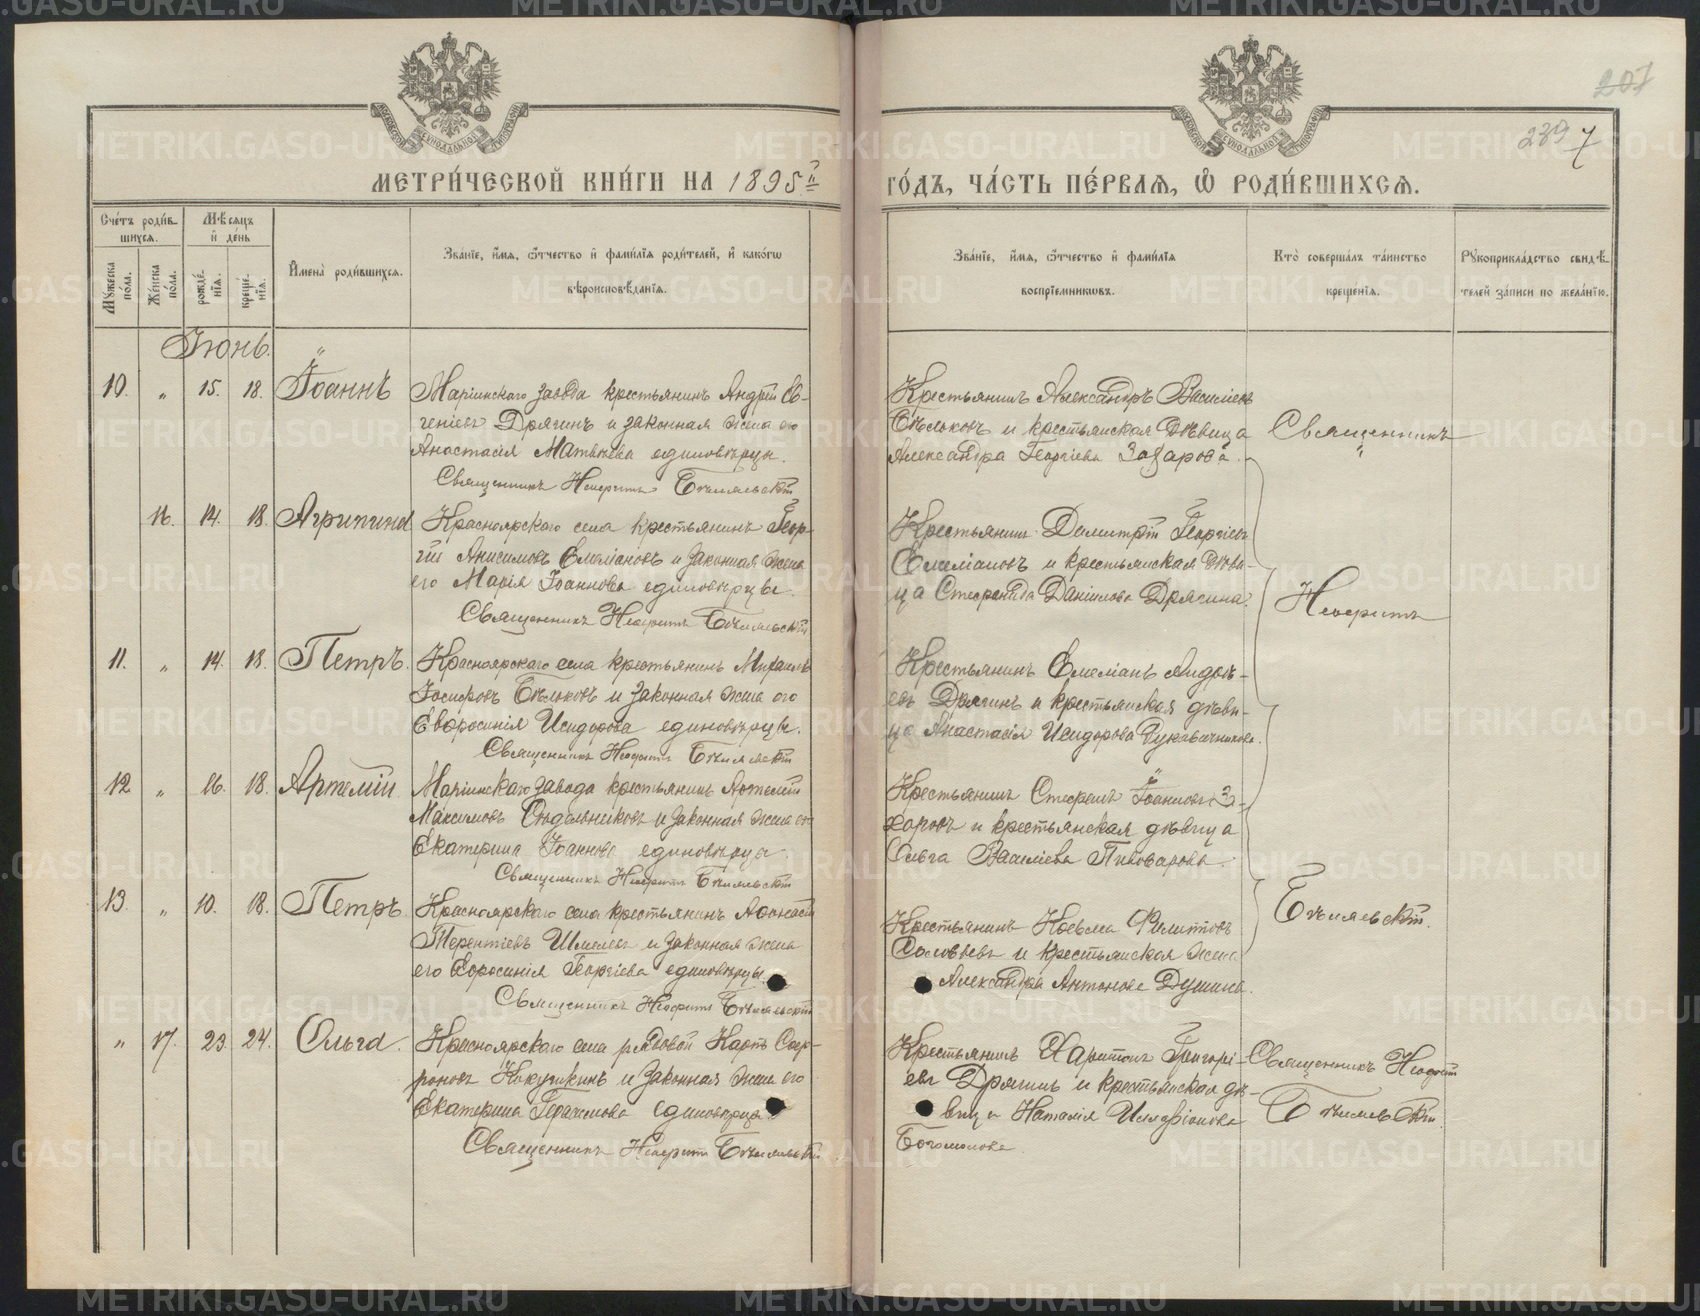 207
239 7
МЕТРИ́ЧЕСКОЙ КНИ́ГИ НА 1895 й
ГО́ДЪ, ЧА́СТЬ ПЕ́РВАѦ, Ѡ҆ РОДИ́ВШИХСѦ.
Сче́тъ роди́в-
шихсѧ.
Мѣсѧцъ
и҆ де́нь
Мꙋжеска по́ла.
Же́нска по́ла.
рожде́-
нїѧ.
креще́-
нїѧ.
И҆мена̀ роди́вшихсѧ.
Зва́нїе, и҆́мѧ, ѻ҆́тчество и҆ фами́лїѧ роди́телей, и҆ како́гѡ
вѣроисповѣ́данїѧ.
Зва́нїе, и҆́мѧ, ѻ҆́тчество и҆ фами́лїѧ
воспрїе́мникѡвъ.
Кто̀ соверша́лъ та́инство
креще́нїѧ.
Рꙋкоприкла́дство свидѣ́-
телей за́писи по жела́нїю.
Іюнь.
10. " 15. 18. Іоаннъ
Маріинскаго завода крестьянинъ Андрей Ев-
геніевъ Дрягинъ и законная жена его
Анастасія Матвѣева единовѣрцы.
Священникъ Неофитъ
Крестьянинъ Александръ Василіевъ
Бѣльковъ и крестьянская дѣвица
Александра Георгіева Захарова.
Священникъ
16. 14. 18. Агрипина
Красноярскаго села крестьянинъ Геор-
гій Анисимовъ Емеліановъ и законная жена
его Марія Іоаннова единовѣрцы.
Священникъ Неофитъ
Крестьянинъ Димитрій Георгіевъ
Емеліановъ и крестьянская дѣви-
ца Стефанида Даніилова Дрягина.
Неофитъ
11. " 14. 18. Петръ.
Красноярскаго села крестьянинъ Михаилъ
Іосифовъ Бѣльковъ и законная жена его
Евфросинія Исидорова единовѣрцы.
Священникъ Неофитъ
Крестьянинъ Емеліанъ Андре-
евъ Дрягинъ и крестьянская дѣви-
ца Анастасія Исидорова
12 " 16. 18. Артемій
Маріинскаго завода крестьянинъ Артемій
Максимовъ и законная жена его
Екатерина Іоаннова единовѣрцы.
Священникъ Неофитъ
Крестьянинъ Стефанъ Іоанновъ За-
харовъ и крестьянская дѣвица
Ольга Василіева Пивоварова.
13. " 10. 18. Петръ.
Красноярскаго села крестьянинъ Аѳанасій
Терентіевъ Шмелевъ и законная жена
его Евфросинія Георгіева единовѣрцы.
Священникъ Неофитъ
Крестьянинъ Филипповъ
Соловьевъ и крестьянская жена
Александра Антонова Душина.
" 17. 23. 24. Ольга.
Красноярскаго села рядовой Карпъ Соф-
роновъ Кокушкинъ и законная жена его
Екатерина Герасимова единовѣрцы
Священникъ Неофитъ
Крестьянинъ Харитонъ Григорі-
евъ Дрягинъ и крестьянская дѣ-
вица Наталія
Богомолова
Священникъ Неофитъ
METRIKI.GASO-URAL.RU